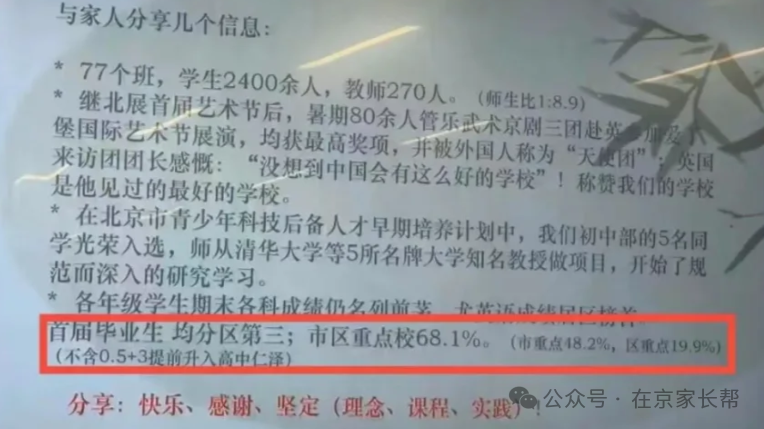 与家人分享几个信息：
* 77个班，学生2400余人，教师270人。（师生比1:8.9）
* 继北展首届艺术节后，暑期80余人管乐武术京剧三团赴英 加爱丁
堡国际艺术节展演，均获最高奖项，并被外国人称为“天使团”；英国
来访团团长感慨：“没想到中国会有这么好的学校”！称赞我们的学校
是他见过的最好的学校。
* 在北京市青少年科技后备人才早期培养计划中，我们初中部的5名同
学光荣入选，师从清华大学等5所名牌大学知名教授做项目，开始了规
范而深入的研究学习。
* 各年级学生期末各科成绩仍名列前茅，尤英语成绩居区榜首
首届毕业生 均分区第三；市区重点校68.1%。（市重点48.2%，区重点19.9%）
（不含0.5+3提前升入高中仁泽）
分享：快乐、感谢、坚定（理念、课程、实践）！
公众号·在京家长帮